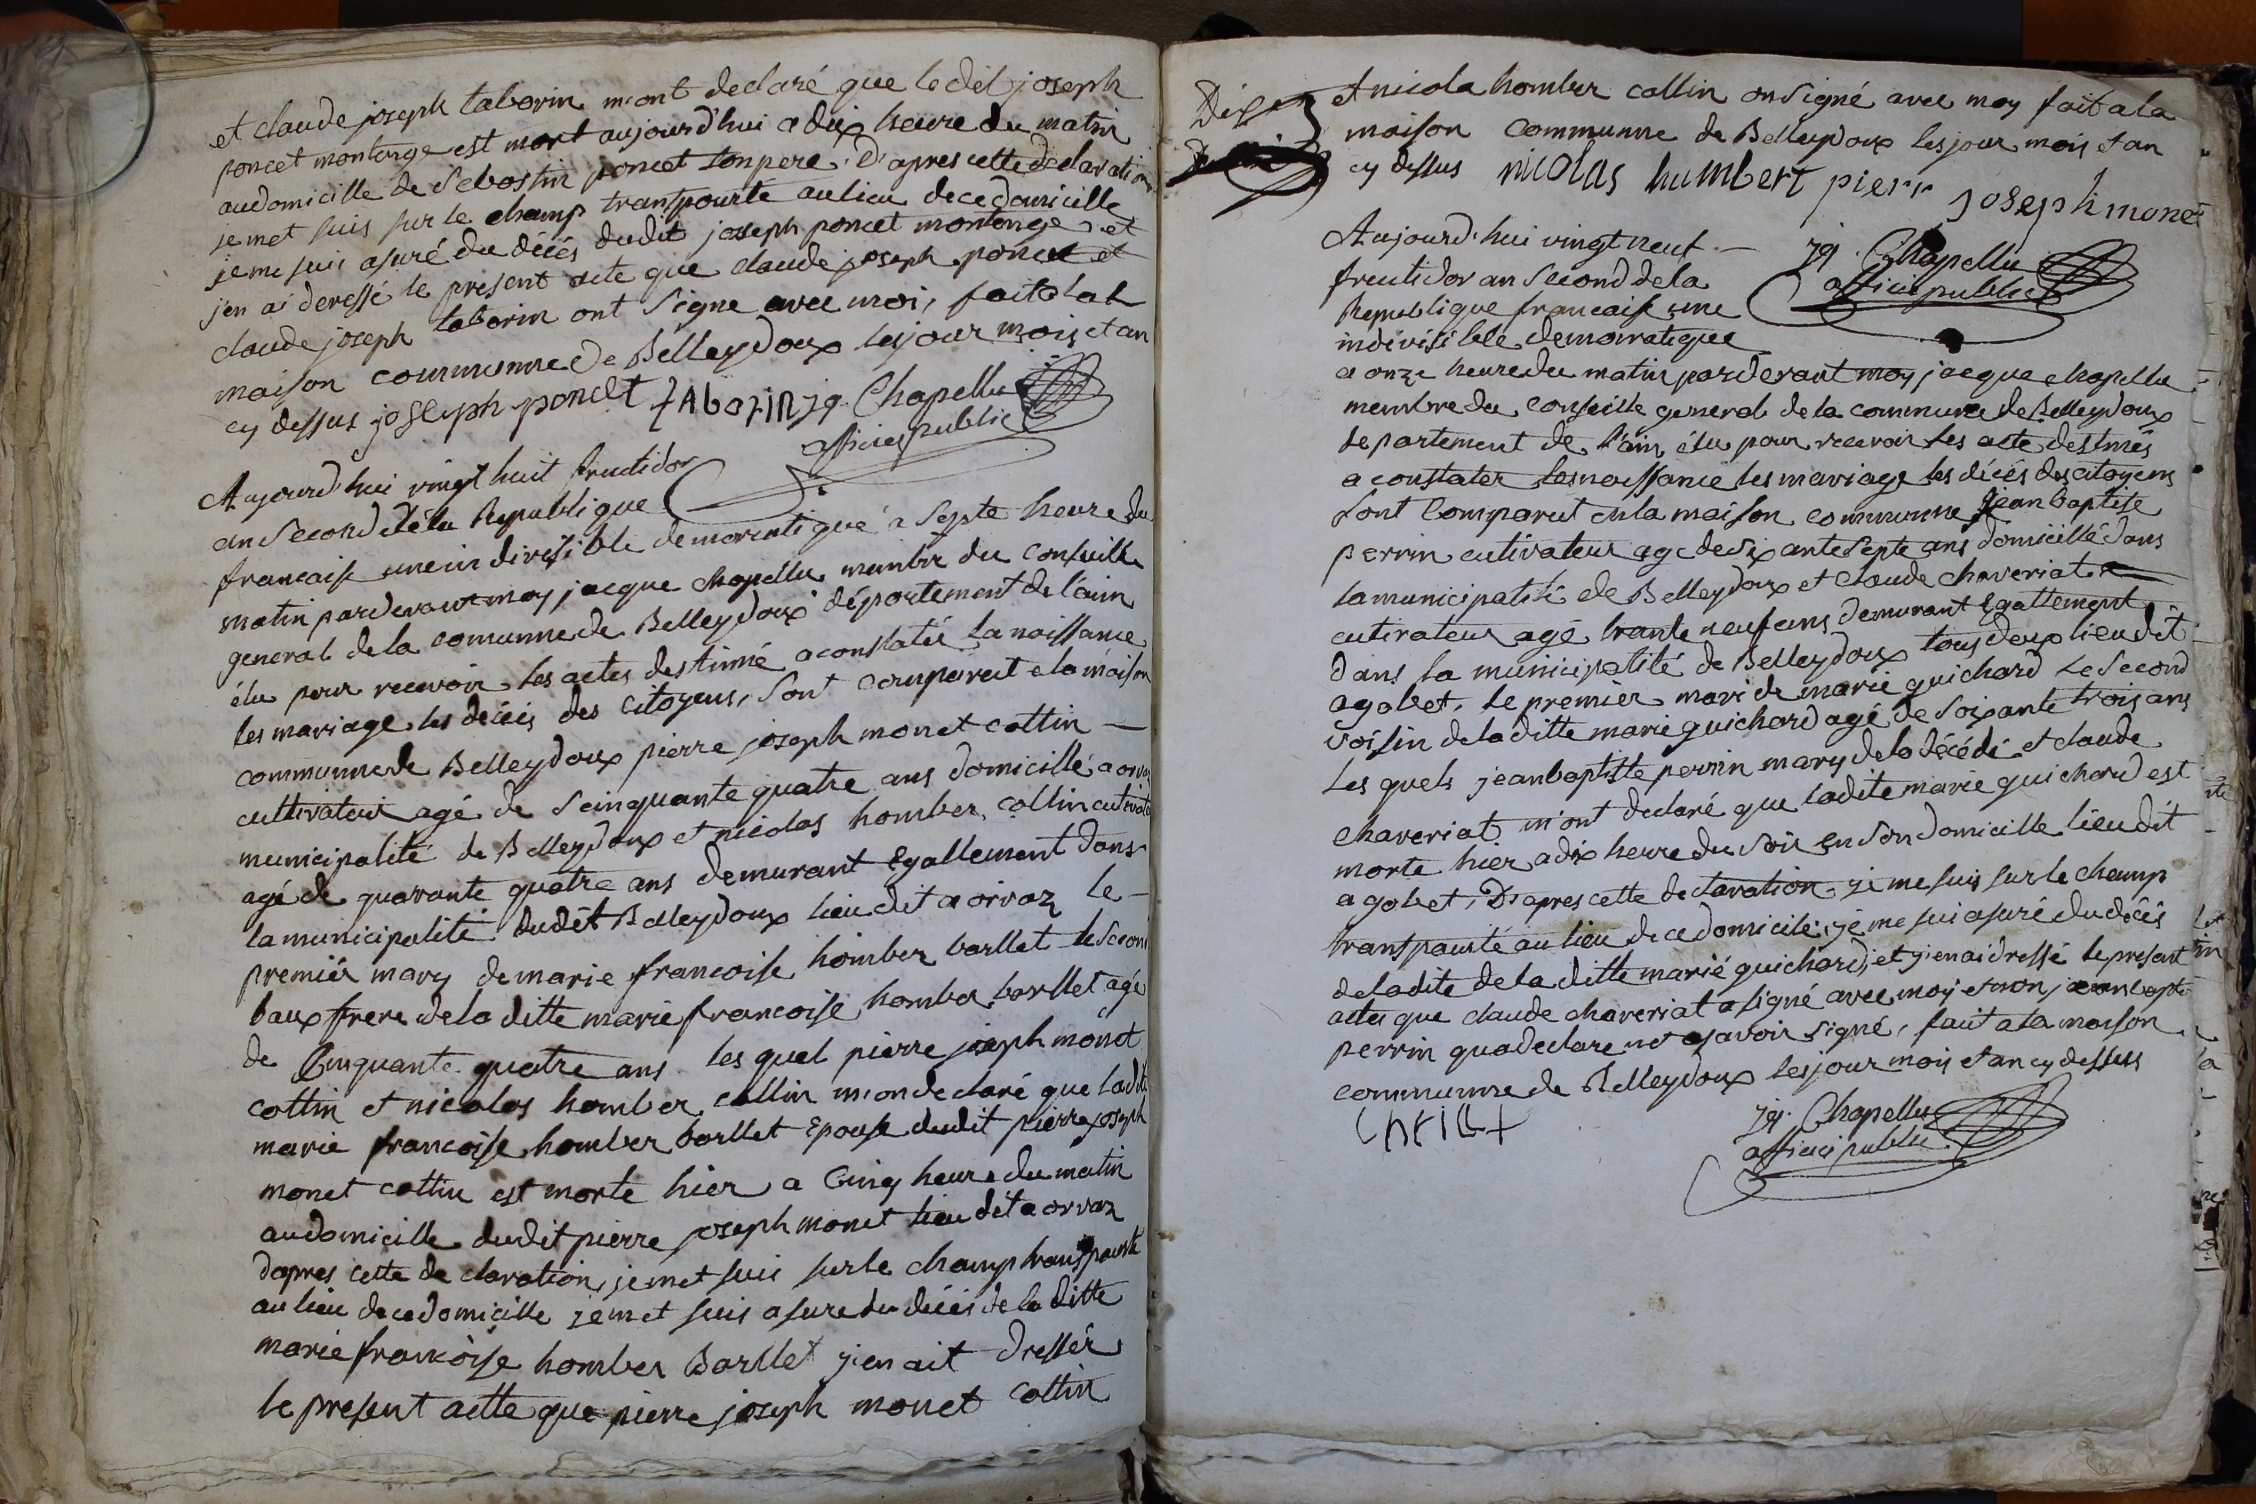 et claude joseph taborin mont declaré que ledit joseph
poncet montange est mort aujourd'hui a dix heure du matin
audomicille de Sebastin poncet sonpere. D'apres cette declaration
je met suis sur le champ transpourté aulieu de ce domicille
je me suis asuré du décés dudit joseph poncet montange, et
j'en ai deressé le present acte que claude joseph poncet et
claude joseph taborin ont Signe avec moi, fait a la
maison communne de Belleydoux lesjour mois et an
cy dessus joseph poncet tAborin jq. Chapellu
officier public
Aujourd'hui vingt huit fructidor
an Second dela Republique
francaise une indivisible democratique a Septe heure du
matin pardevant moy jacque Chapellu membre du conseille
general de la comunne de Belleydoux département de l'ain
élu pour recevoir les actes destinné a constatée la naissance
les mariage les décéis des Citoyens, Sont comparut a la maison
communne de Belleydoux pierre joseph monet cottin —
cultivateur agé de Seinquante quatre ans domicillé a orvaz
municipalité de Belleydoux et nicolas homber collin cutivate
agé de quarante quatre ans demurant Egallement dans
la municipalité dudit Belleydoux lieu dit a orvaz le —
premiér mary de marie francoise homber barllet le Second
baux frere dela ditte marie francoise homber barllet agé
de Cinquante quatre ans les quel pierre joseph monet
cottin et nicolas homber collin m'on declaré que ladite
marie francoise homber barllet Epouse dudit pierre joseph
monet cottin est morte hier a Cinq heure du matin
audomicille dudit pierre joseph monet lieu dit a orvaz
dapres cette declaration, je met suis sur le champ transpourté
au lieu de ce domicille je met suis asure du décés de la ditte
marie francoise homber Barllet j'en ait dressér
le present actte que pierre joseph monet cottin
et nicola homber collin on Signé avec moy fait a la
maison communne de Belleydoux les jour mois et an
cy dessus nicolas humbert pierr joseph monet
Aujourd'hui vingt neuf — jq. Chapellu
fructidor an Second de la officier public
Republique francaise une
indivisible democratique
a onze heure du matin pardevant moy jacque chapellu
membre du conseille general de la commune de Belleydoux
departement de l'ain élu pour recevoir les acte destinés
a constater les naissance les mariage les décés des citoyens
Sont Comparut en la maison communne jean baptiste
perrin cutivateur age de Soixante Septe ans domicillé dans
la municipalité de Belleydoux et Claude chaveriat
cutivateur agé trante neuf ans demurant Egallement
dans la municipalité de Belleydoux tous deux lieu dit
a gobet, le premier mari de marie guichard Le Second
voisin de la ditte marie guichard agé de Soixante trois ans
Les quels jean baptiste perrin mary de la décédé et claude
chaveriat m'ont declaré que ladite marie guichard est
morte hier a dix heure du Soir en Son domicille lieu dit
a gobet, D'apres cette declaration, je me suis sur le champ
transpaurté au lieu de ce domicile, je me sui asuré du décés
de ladite de la ditte marie guichard, et j'en ai dressé le present
actes que claude chaveriat a signé avec moy et non jean bapte
perrin qua declare ne savoir signé, fait a la maison
communne de Belleydoux les jour mois et an cy dessus
jq. Chapellu
officier public